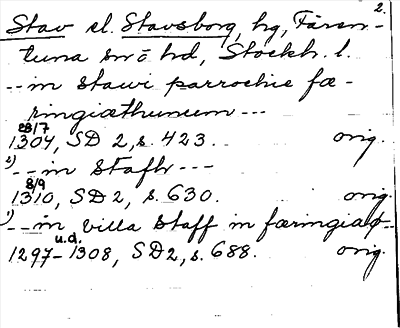 2.
Stav el. Stavsborg, hg, Fären-
tuna snö hd, Stockh. l.
--in stawi parrochie fæ-
ringiæthunum---
28/7
1304, SD 2, s. 423. orig.
2) --in Stafhr---
8/9
1310, SD 2, s. 630. orig.
1) --in villa Staff in færingiaø--
u.d.
1297-1308, SD 2, s. 688. orig.